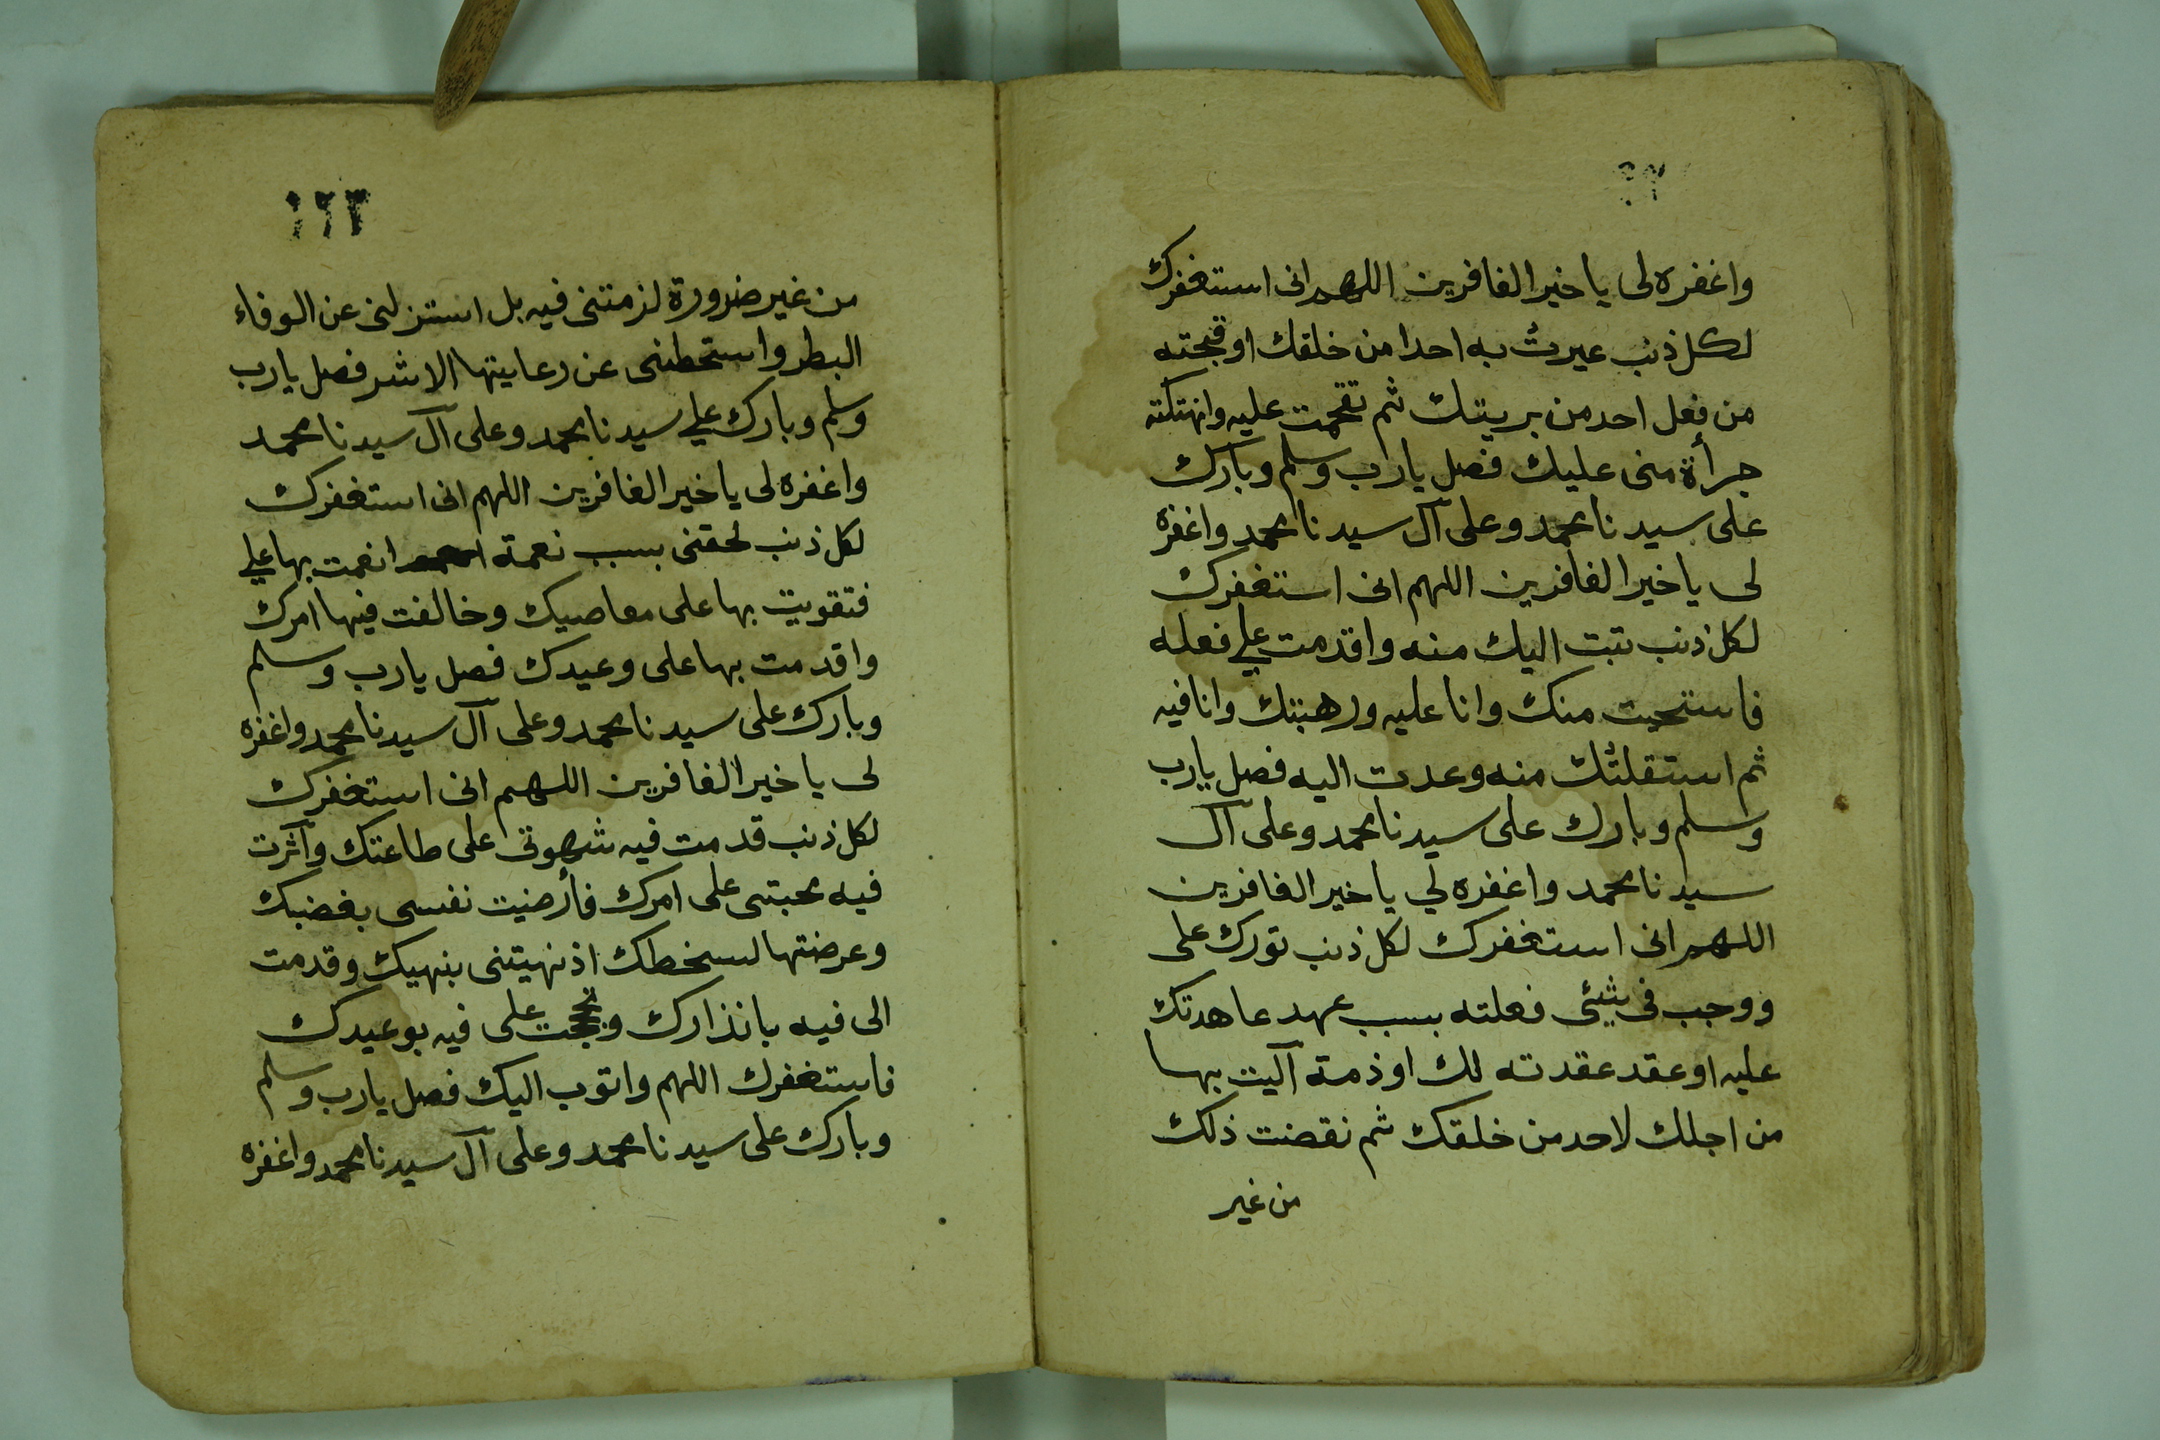 واغفره لى يا خير الغافرين اللهم انى استغفرك
لكل ذنب عيرت به احدا من خلقك او قبحته
من فعل احد من بريتك ثم تقحمت عليه وانتهكته
جرأة منى عليك فصل يارب وسلم وبارك
على سيدنا محمد وعلى آل سيدنا محمد واغفره
لى يا خير الغافرين اللهم انى استغفرك
لكل ذنب تبت اليك منه واقدمت على فعله
فاستحيت منك وانا عليه ورهبتك وانا فيه
ثم استقلتك منه وعدت اليه فصل يارب
وسلم وبارك على سيدنا محمد وعلى آل
سيدنا محمد واغفره لي يا خير الغافرين
اللهم انى استغفرك لكل ذنب تورك على
ووجب فى شيئى فعلته بسبب عهد عاهدتك
عليه او عقد عقدته لك او ذمة آليت بها
من اجلك لاحد من خلقك ثم نقضت ذلك
من غير
١٦٣
من غير ضرورة لزمتنى فيه بل استزلنى عن الوفاء
البطر واستحطنى عن رعايتها الاشر فصل يارب
وسلم وبارك على سيدنا محمد وعلى آل سيدنا محمد
واغفره لى يا خير الغافرين اللهم انى استغفرك
لكل ذنب لحقنى بسبب نعمة انعمت بها على
فتقويت بها على معاصيك وخالفت فيها امرك
واقدمت بها على وعيدك فصل يارب وسلم
وبارك على سيدنا محمد وعلى آل سيدنا محمد واغفره
لى يا خير الغافرين اللهم انى استغفرك
لكل ذنب قدمت فيه شهوتى على طاعتك وآثرت
فيه محبتى على امرك فأرضيت نفسى بغضبك
وعرضتها لسخطك اذ نهيتنى بنهيك وقدمت
الى فيه بانذارك وتحججت على فيه بوعيدك
فاستغفرك اللهم واتوب اليك فصل يارب وسلم
وبارك على سيدنا محمد وعلى آل سيدنا محمد واغفره